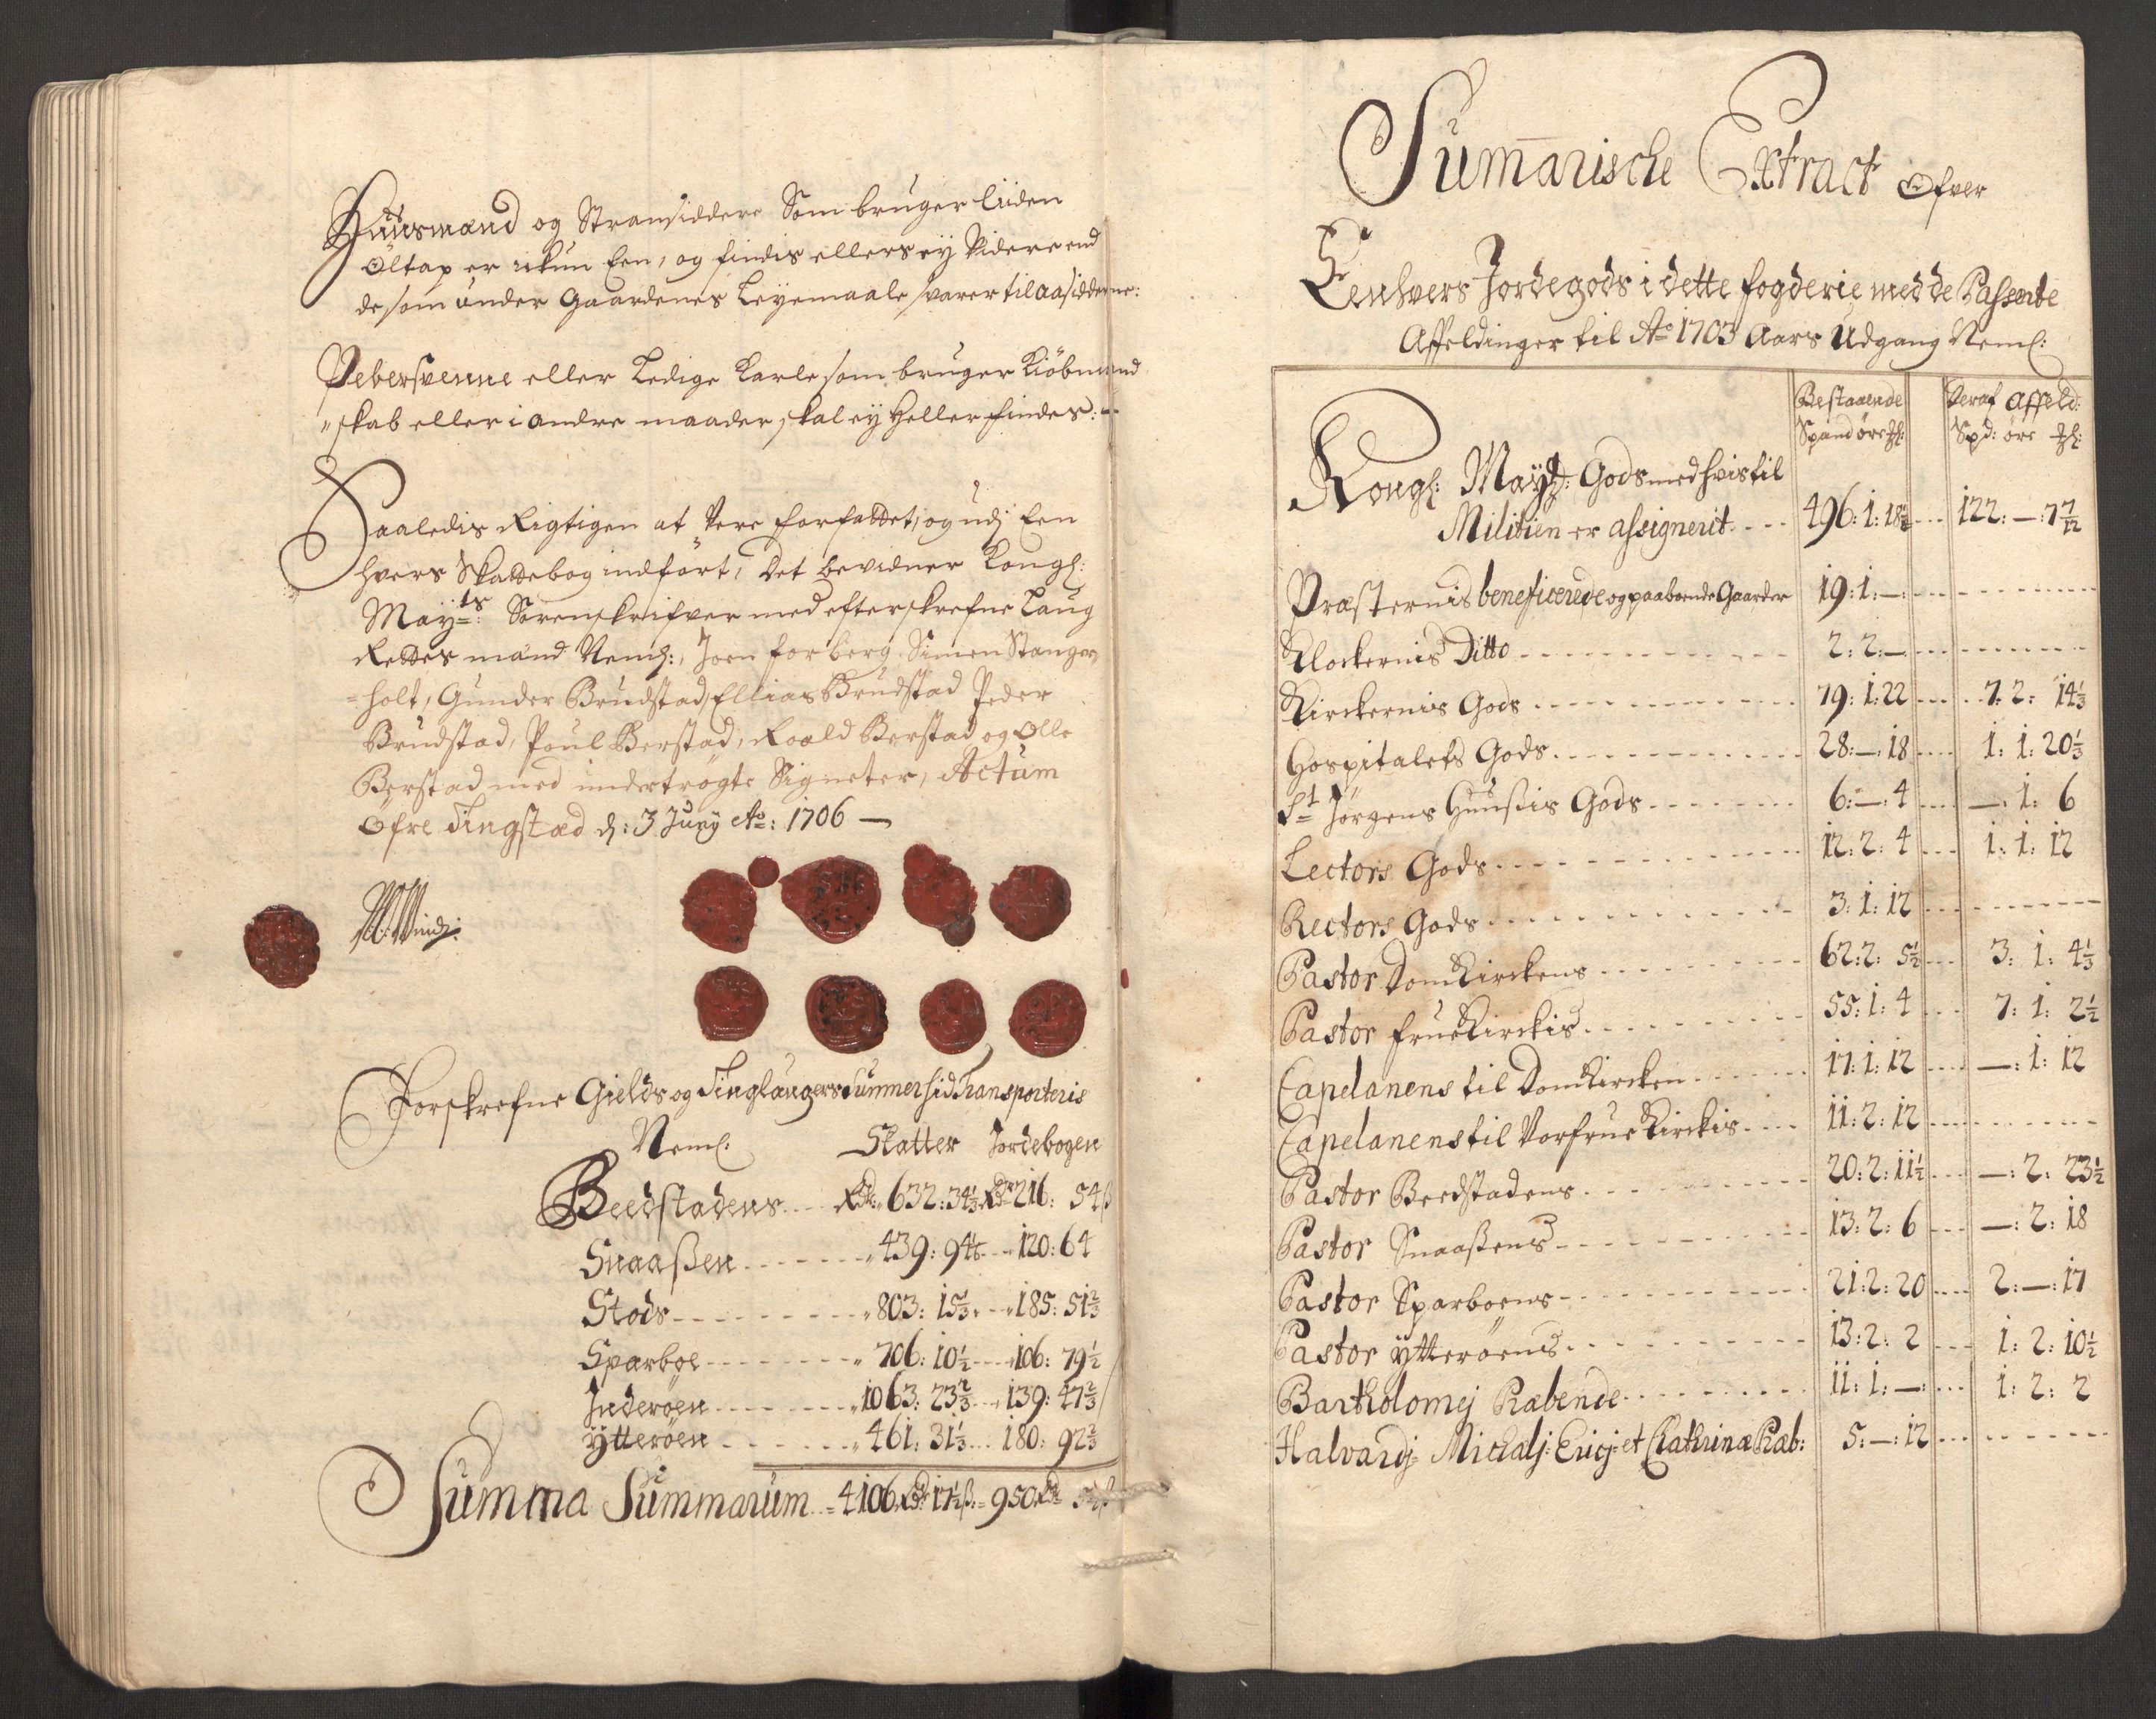 Huusmænd og Strandsiddere Som bruger liiden
Öltap er ikun Een, og findis ellers ey Videre end
de som under Gaardenes Leyemaale svarer til aasidderne:
Pebersvenne eller Ledige Karle som bruger Kiöbmand
"skab eller i andre maader, skal ey heller findes: —
Saaledis Rigtigen at Vere forfattet, og udj Een
hvers Skattebog indfört, Det bevidner Kongl:
Mayts: Sorenskrifver med efterskrefne Laug
Rettes mænd Neml:, Joen forberg Simen Stanger
=holt, Gunder Brudstad, Ellias Brudstad Peder
Brudstad, Poul Berstad, Roald Berstad og Olle
Berstad med undertrögte Signeter, Actum
Öfre Tingstad d: 3 Juny Ao: 1706 —
Forskrefne Gields og Tinglaugers Summer hid Transporteris
Neml. Skatter Jordebogen
Beedstadens .... Rdr 632: 34⅓ Rdr 216: 54 ß
Snaaßen ....... " 439: 94⅙ ... " 120: 64
Stods ......... " 803: 15⅓ ... " 185: 51⅔
Sparboe ........ " 706: 10½ ... " 106: 79½
Inderöen ....... " 1063: 23⅔ ... " 139: 47⅔
Ytteröen ....... " 461: 31⅓ ... 180: 92⅔
Summa Summarum .. = 4106 Rdr 17½ ß: = 950 Rdr
Sumarische Extract Ofver
Eenhvers Jordegods i dette fogderie med de Passerte
Affeldinger til Ao 1703 Aars Udgang Neml:
Bestaaende Deraf Affeld:
Spand öre Spd: öre
Kongl: Maytz: Gods med hvis til
Militien er assignerit ... 496: 1: 18½ ... 122: —: 7 7/12
Præsternis beneficerede og paaboende Gaarder 19: 1: —
Klockernis Ditto ........ 2: 2: —
Kirckernis Gods ........ 79: 1: 22 ... 7: 2: 14⅓
Hospitalets Gods ........ 28: —: 18 ... 1: 1: 20⅓
St Jørgens Huußis Gods ........ 6: —: 4 ... —: 1: 6
Lectors Gods ........ 12: 2: 4 ... 1: 1: 12
Rectors Gods ........ 3: 1: 12
Pastor DomKirckens ........ 62: 2: 5½ ... 3: 1: 4⅓
Pastor frueKirckis ........ 55: 1: 4 ... 7: 1: 2½
Capelanens til DomKircken ...... 17: 1: 12 ... —: 1: 12
Capelanens til Vorfrue Kirckis .... 11: 2: 12
Pastor Beedstadens ........ 20: 2: 11½ ... —: 2: 23½
Pastor Snaaßens ........ 13: 2: 6 ... —: 2: 18
Pastor Sparboens ........ 21: 2: 20 ... 2: —: 17
Pastor Ytteröens ........ 13: 2: 2 ... 1: 2: 10½
Bartholomej Præbende ........ 11: 1: — ... 1: 2: 2
Halvardj Michalj: Ericj: et Chatrinæ Præb: 5: —: 12